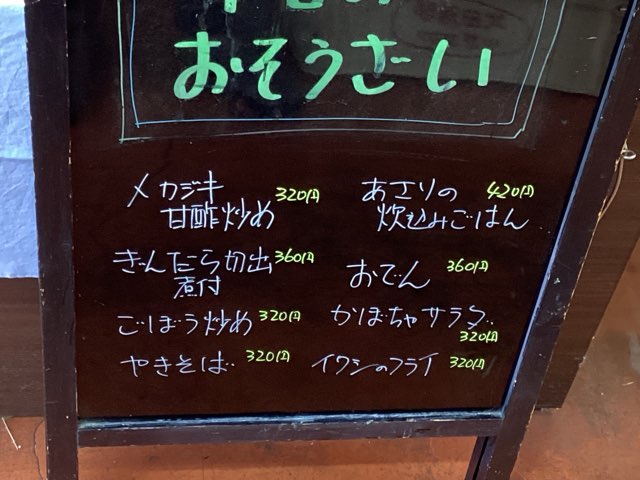 おそうざい
メカジキ 320円
甘酢炒め
ぎんだら切出 360円
煮付
ごぼう炒め 320円
やきそば 320円
あさりの 420円
炊込みごはん
おでん 360円
かぼちゃサラダ
320円
イワシのフライ 320円